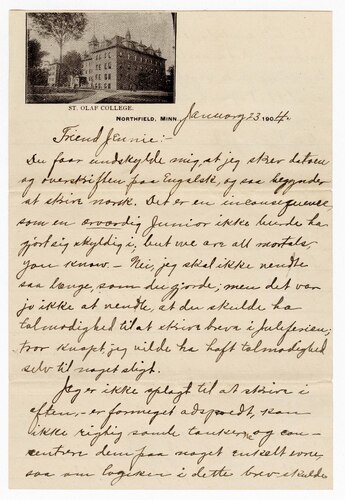 ST. OLAF COLLEGE.
NORTHFIELD, MINN. January 23 1904.
Friend Jennie:-
Du faar undskylde mig, at jeg skrev datoen
og overskriften paa Engelsk, og saa begynder
at skrive norsk. Det er en inconsequence,
som en ærværdig Junior ikke burde ha
gjort sig skyldig i, but we are all mortals,
you know. - Nei, jeg skal ikke vendte
saa længe, som du gjorde; men det var
jo ikke at vendte, at du skulde ha
talmodighed til at skrive breve i Juleferien;
tror knapt jeg vilde ha haft talmodighed
selv til noget sligt.
Jeg er ikke oplagt til at skrive i
aften, - er formeget adspredt, kan
ikke rigtig samle tankerne og con-
centrere dem paa noget enkelt emne,
saa om logiken i dette brev skulde